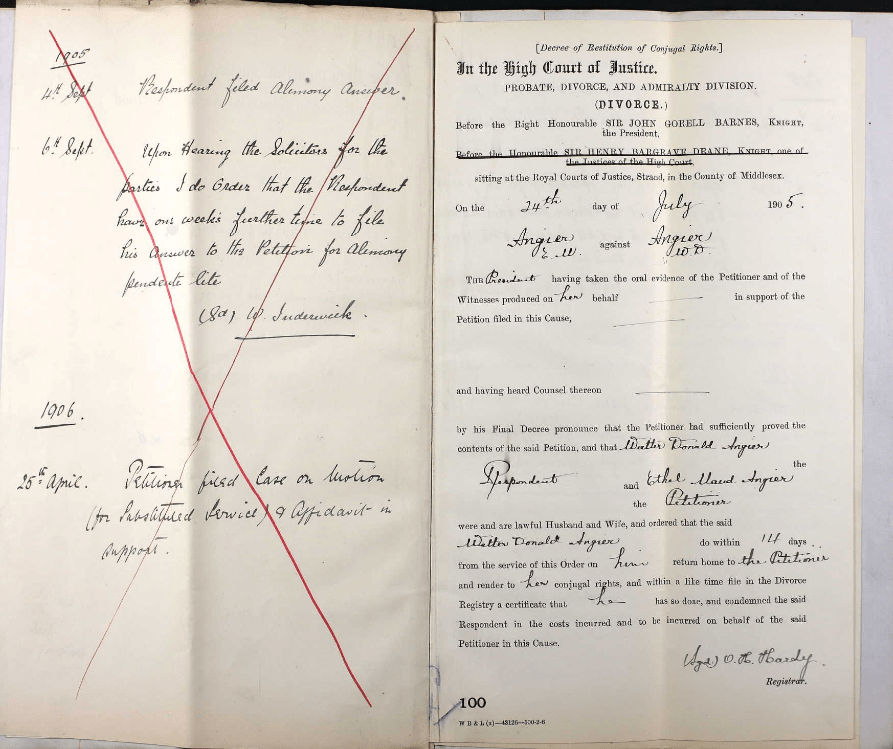 1905
4th Sept Respondent filed Alimony Answer.
6th Sept. Upon Hearing the Solicitors for the
parties I do Order that the Respondent
have one weeks further time to file
his Answer to the Petition for Alimony
pendente lite
(Sd) W. Inderwick.
1906.
25th April. Petitioner filed Case on Motion
(for Substituted Service) & Affidavit in
support.
[Decree of Restitution of Conjugal Rights.]
In the High Court of Justice.
PROBATE, DIVORCE, AND ADMIRALTY DIVISION.
(DIVORCE.)
Before the Right Honourable SIR JOHN GORELL BARNES, KNIGHT,
the President,
Before the Honourable SIR HENRY BARGRAVE DEANE, KNIGHT, one of
the Justices of the High Court,
sitting at the Royal Courts of Justice, Strand, in the County of Middlesex.
On the 24th day of July 1905.
Angier against Angier
E. M. W D.
THE President having taken the oral evidence of the Petitioner and of the
Witnesses produced on her behalf in support of the
Petition filed in this Cause,
and having heard Counsel thereon
by his Final Decree pronounce that the Petitioner had sufficiently proved the
contents of the said Petition, and that Walter Donald Angier
the
Respondent and Ethel Maud Angier
the Petitioner
were and are lawful Husband and Wife, and ordered that the said
Walter Donald Angier do within 14 days
from the service of this Order on him return home to the Petitioner
and render to her conjugal rights, and within a like time file in the Divorce
Registry a certificate that he has so done, and condemned the said
Respondent in the costs incurred and to be incurred on behalf of the said
Petitioner in this Cause.
(Sgd) O. H. Hardy.
Registrar.
100
W B & L (2)—43126—500-2-6